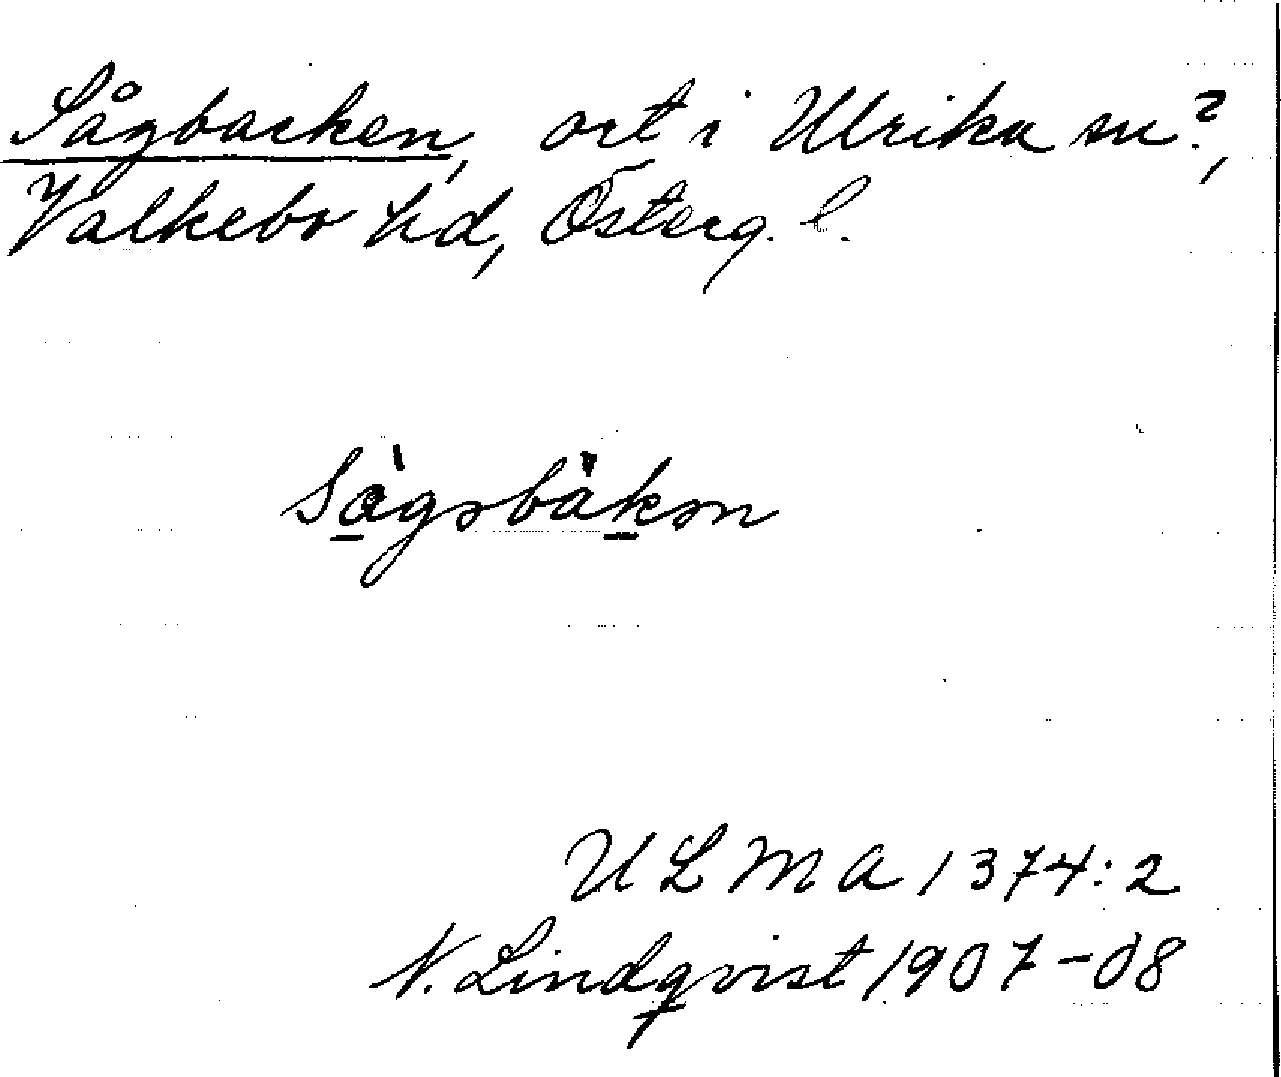 Sågbacken, ort i Ulrika sn?,
Valkebo hd, Österg. l.
ULMA 1374:2
N. Lindqvist 1907-08